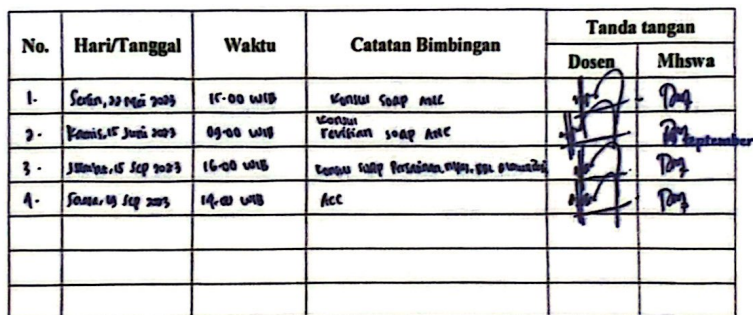 No. Hari/Tanggal Waktu Catatan Bimbingan Tanda tangan
Dosen Mhswa
1. Senin, 22 Mei 2023 15.00 WIB Konsul Soap ANC
2. Kamis, 15 Juni 2023 09.00 WIB Konsul
revisian soap ANC
September
3. 15 Sep 2023 16.00 WIB Konsul Soap Persalinan, nifas, BBL
4. Sep 2023 WIB Acc